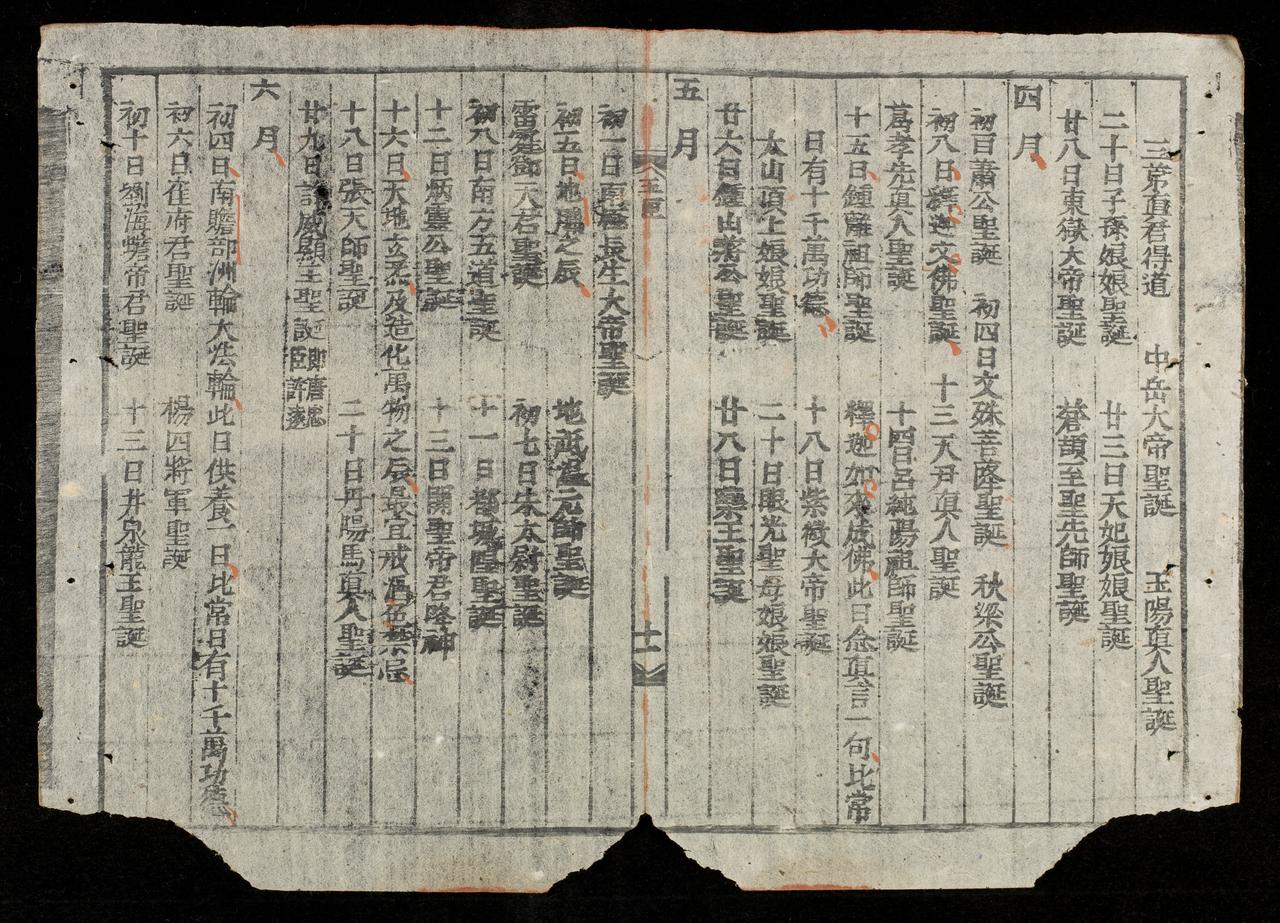 三茅真君得道　中岳大帝聖誕　玉陽真人聖誕
二十日子孫娘娘聖誕　廿三日天妃娘娘聖誕
廿八日東嶽大帝聖誕　蒼頡至聖先師聖誕
四月
初一日蕭公聖誕　初四日文殊菩薩聖誕　秋梁公聖誕
初八日釋迦文佛聖誕　十三天尹真人聖誕
葛孝先真人聖誕　十四日呂純陽祖師聖誕
十五日鍾離祖師聖誕　釋迦如來成佛此日念真言一句比常
日有十千萬功德　十八日紫微大帝聖誕
太山頂上娘娘聖誕　二十日眼光聖母娘娘聖誕
廿六日鍾山蔣公聖誕　廿八日藥王聖誕
五月
十一
初一日南極長生大帝聖誕
初五日地臘之辰　地祇溫元帥聖誕
雷霆鄧天君聖誕　初七日朱太尉聖誕
初八日南方五道聖誕　十一日都城隍聖誕
十二日炳靈公聖誕　十三日關聖帝君降神
十六日天地玄炁及造化萬物之辰最宜戒酒色禁忌
十八日張天師聖誕　二十日丹陽馬真人聖誕
廿九日許威顯王聖誕即唐忠臣許遠
六月
初四日南贍部洲輪大法輪此日供養一日比常日有十千萬功德
初六日崔府君聖誕　楊四將軍聖誕
初十日劉海蟾帝君聖誕　十三日井泉龍王聖誕